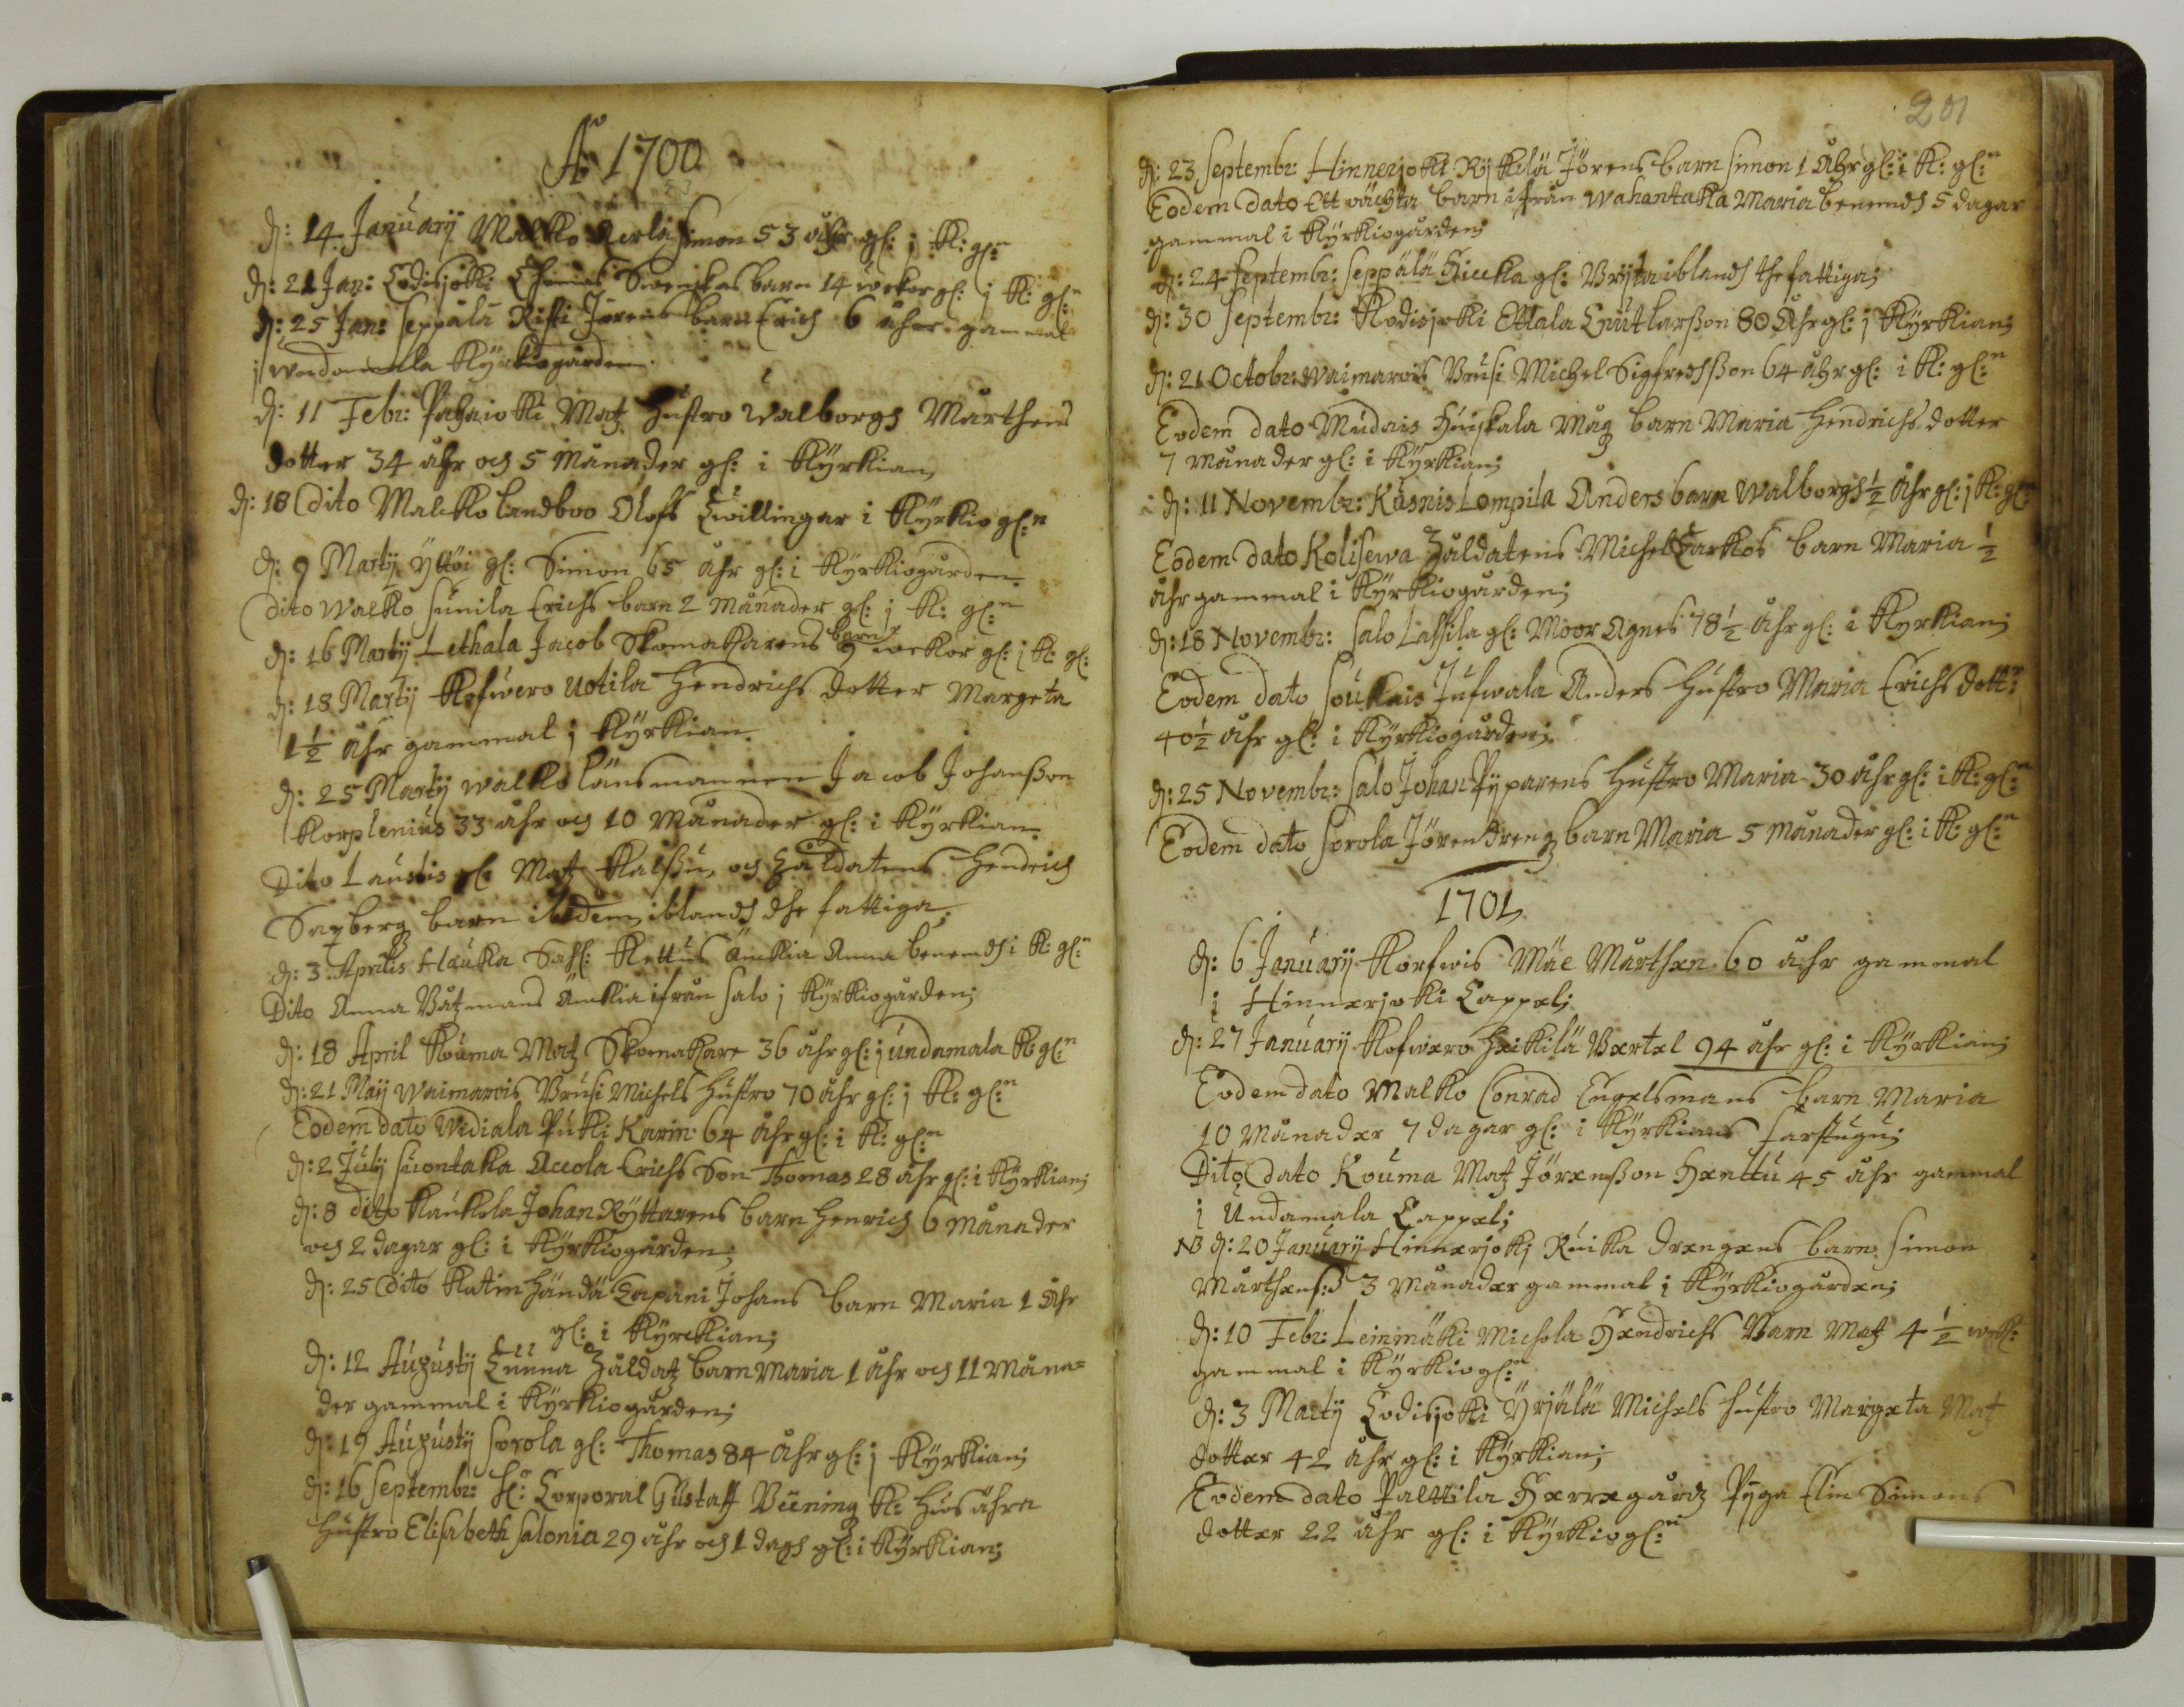 Åo 1700
d: 14 Januarij Malko Acrla Simon 53 åhr gl: j k: gln
d: 21 Jan: Codisjoki Thomas Swenskas barn 14 wekor gl: j k: gln
d: 25 Jan: Seppälä Risti Jörens barn Erich 6 åhr gammal
j undamala kyrkiogården.
d: 11 Febr: Pahaiocki Matz hustro Walborgh Mårthens
dotter 34 åhr och 5 månader gl: i kyrkian,
d: 18 dito Malcko landboo Olofs twillingar i kyrkiogl:n
d: 9 Martij Yttöi gl: Simon 65 åhr gl: i kyrkiogården.
dito walko Sunila Erichs barn 2 månader gl: j k: gl:n
d: 16 Martij Lethala Jacob Skomakarens barn 9 wekor gl: j k: gl:
d: 18 Martij Kofwero Uotila Hendrichs dotter Margeta
1½ åhr gammal j kyrkian.
d: 25 Martij walko länsmannen Jacob Johanßon
Korplenius 33 åhr och 10 månader gl: i kyrkian.
Dito Laustis gl: Matz Kalßu, och Såldatens Hendrich
Sayberg barn ibidem iblandh dhe fattiga.
d: 3 Aprilis Hauka Sahl: Kettus änckia Anna benemdh i k: gl:n
Dito Anna Båtzmans änckia ifrån Salo j kyrkiogården;
d: 18 April Kouma Matz Skomakare 36 åhr gl: j undamala k: gl:n
d: 21 Maij Waimarois Brusi Michels hustro 70 åhr gl: j k: gl:n
Eodem dato Widiala Pukki Karin 64 åhr gl: i k: gl:n
d: 2 Julij Suontaka Accola Erichs Son Thomas 28 åhr gl: i kyrkian;
d: 8 dito Kaukola Johan Ryttarens barn Henrich 6 månader
och 2 dagar gl: i kyrkiogården;
d: 25 dito Katin händä Tapani Johans barn Maria 1 åhr
gl: i kyrckian;
d: 12 Augustij Lunna Såldatz barn Maria 1 åhr och 11 Måna=
der gammal i kyrkiogården;
d: 19 Augustij Sorola gl: Thomas 84 åhr gl: j kyrkian;
d: 16 Septembr: Hr: Corporal Gustaff Buning k: hus ähra
hustro Elisabeth Salonia 29 åhr och 1 dagh gl: i kyrkian;
201
d: 23 Septembr: Hinnerjoki Ryskilä Jörens barn Simon 1 åhr gl: i k: gl:n
Eodem dato Ett oächta barn ifrån Wahantaka Maria benemdh 5 dagar
gammal i kyrkiogården;
d: 24 Septembr: Seppälä Hiecka gl: Brijta iblandh the fattiga;
d: 30 Septembr: Kodisjoki Ettala Knut larßon 80 åhr gl: j kyrkian;
d: 21 Octobr: Waimarois Brusi Michel Sigfredhßon 64 åhr gl: i k: gl:n
Eodem dato Mudais Huiskala Måg barn Maria Hendrichs dotter
7 månader gl: i kyrkian;
d: 11 Novembr: Kusnis Lompila Anders barn Walborgh ½ åhr gl: j k: gl:n
Eodem dato Kolisewa Såldatens Michel Tarkos barn Maria ½
åhr gammal i kyrkiogården;
d: 18 Novembr: Salo Lassila gl: Moor Agnes 78½ åhr gl: i kyrkian;
Eodem dato Soukais Jufwala Anders hustro Maria Erichs dott:r
40½ åhr gl: i kyrkiogården;
d: 25 Novembr: Salo Johan Pyparens hustro Maria 30 åhr gl: i k: gl:n
Eodem dato Sorola Jören dreng barn Maria 5 månader gl: i k: gl:n
1701
d: 6 Januarij Korfwis Mäe Mårthen 60 åhr gammal
i Hinnerjoki Cappel;
d: 27 Januarij Kofwero Heikilä Bertel 94 åhr gl: i kyrkian;
Eodem dato Malko Conrad Engelsmans barn Maria
10 månader 7 dagar gl: i kyrkians farstugu;
Dito dato Kouma Matz Jörenßon Henttu 45 åhr gammal
i Undamala Cappel;
NB d: 20 Januarij Hinnerjokj Ruika drengens barn Simon
Mårthens: 3 månader gammal i kyrkiogården;
d: 10 Febr: Leinmäki Michola Hendrichs Barn Matz 4½ wek:
gammal i kyrkiogl:n
d: 3 Martij Codisjoki Yrjälä Michels hustro Margeta Matz
dotter 42 åhr gl: i kyrkian;
Eodem dato Palttila Herregårdz Pyga Elin Simons
dotter 22 åhr gl: i kyrkiogl:n